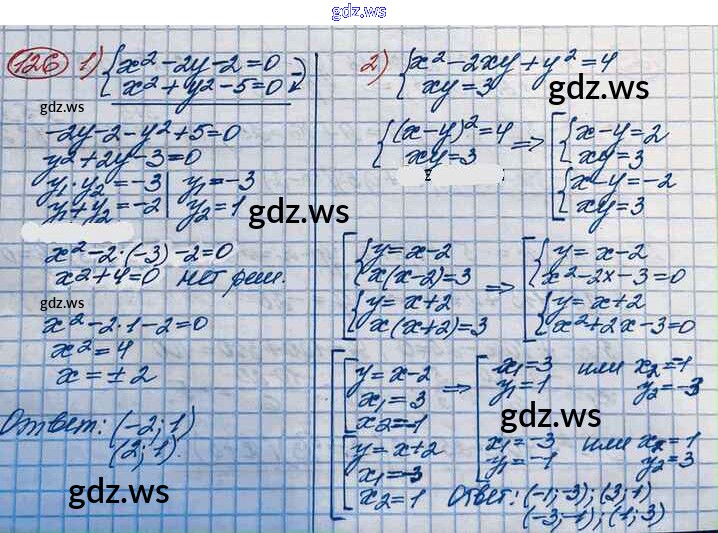 gdz.ws
126 1) { x² - 2y - 2 = 0
x² + y² - 5 = 0 )
gdz.ws
-2y - 2 - y² + 5 = 0
y² + 2y - 3 = 0
y₁ · y₂ = -3 | y₁ = -3
y₁ + y₂ = -2 | y₂ = 1
gdz.ws
x² - 2 · (-3) - 2 = 0
x² + 4 = 0 нет реш.
gdz.ws
x² - 2 · 1 - 2 = 0
x² = 4
x = ± 2
Ответ: (-2; 1)
(2; 1).
gdz.ws
2) { x² - 2xy + y² = 4
xy = 3
gdz.ws
{ (x - y)² = 4
xy = 3 ⇒ [ { x - y = 2
xy = 3
{ x - y = -2
xy = 3
[ { y = x - 2
x(x - 2) = 3
{ y = x + 2
x(x + 2) = 3 ⇒ [ { y = x - 2
x² - 2x - 3 = 0
{ y = x + 2
x² + 2x - 3 = 0
[ [ y = x - 2
x₁ = 3
x₂ = -1
[ y = x + 2
x₁ = -3
x₂ = 1
⇒ [ x₁ = 3 или x₂ = -1
y₁ = 1 y₂ = -3
gdz.ws
x₁ = -3 или x₂ = 1
y₁ = -1 y₂ = 3
Ответ: (-1; -3); (3; 1)
(-3; -1); (1; 3)
gdz.ws